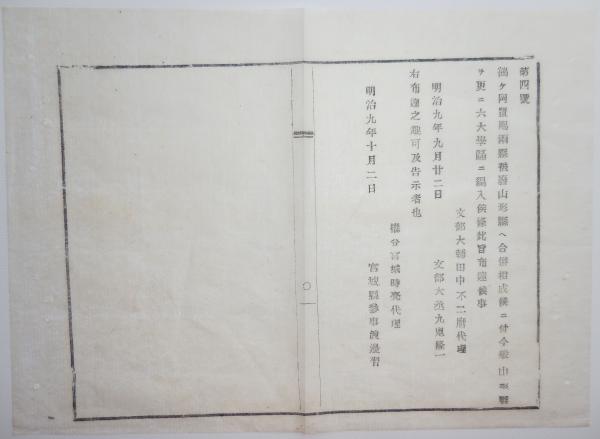 第四號
鶴ケ岡置賜兩縣被廢山形縣ヘ合併相成候ニ付今般山形縣
ヲ更ニ六大學區ニ編入候條此旨布達候事
文部大輔田中不二麿代理
明治九年九月廿二日 文部大丞九鬼隆一
右布達之趣可及告示者也
權令宮城時亮代理
明治九年十月二日 宮城縣參事